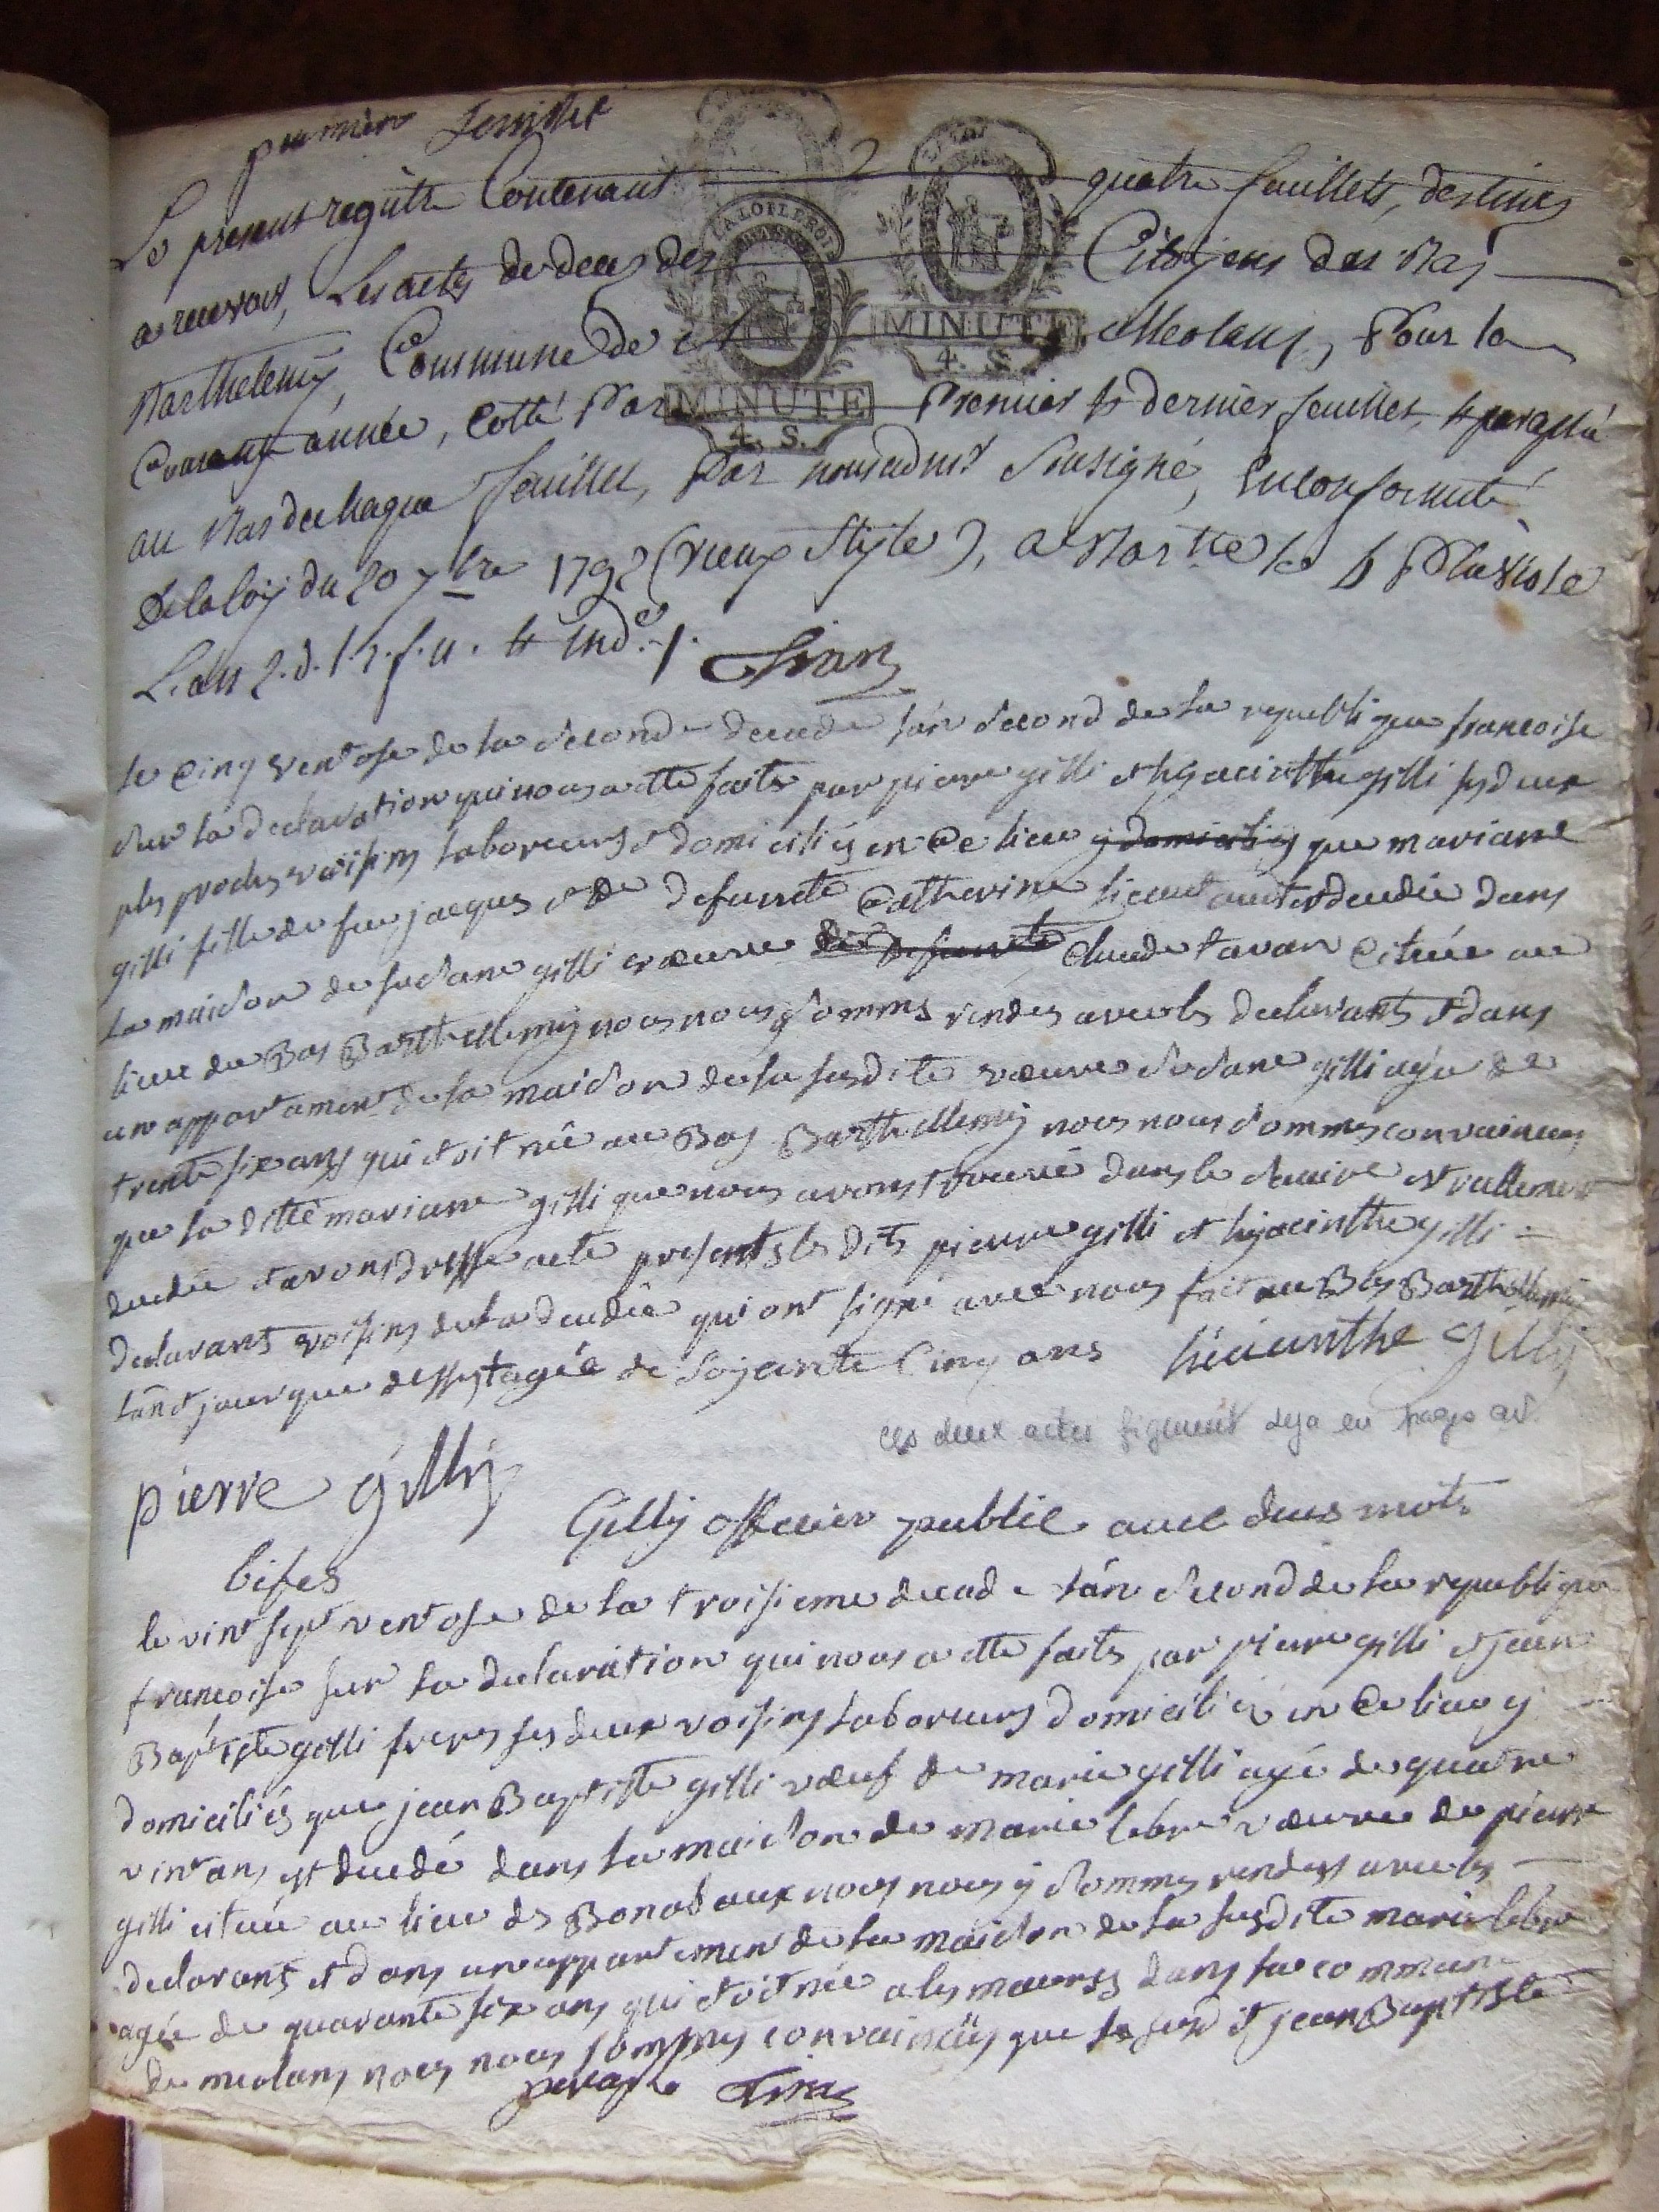 premier feuillet
Le present registre Contenant 2 quatre feuillets, destinés
a recevoir, Les actes de deces des Citoyens des Bas
Barthelemy, Commune de Meolans, Pour la
Courante année, Cotté Par Premier & dernier feuillet, & paraphé
au Bas de chaque feuillet, Par nous soussigné, En conformité
De la loy du 20 7bre 1792 (vieux Style), a le 6 Pluviose
L'an 2. d. l. r. f. u. & ind.
LA LOI LE ROI
MINUTE
4. S.
MINUTE
4. S.
le cinq ventose de la second decade l'an second de la republique francoise
sur la declaration qui nous a ette faite par pierre gilli et hyacinthe gilli ses deux
plus proches voisins laboreurs domiciliés en ce lieu y domiciliés que mariane
gilli fille de feu jacques et de defunte Catherine est decedée dans
la maison de susane gilli vœuve de defunte Claude tavan cituée au
lieu du Bas Barthellemy nous nous y sommes rendus avec les declarants et dans
un appartament de la maison de la susdite vœuve susane gilli agée de
trente six ans qui etoit née au Bas Barthellemy nous nous sommes convaincus
que la ditte mariane gilli que nous avons trouvé dans le suaire est reellement
decedée et avons dressé acte presents les dits pierre gilli et hyacinthe gilli
declarants voisins de la decedée qui ont signé avec nous fait au Bas Barthellemy
l'an et jour que dessus agée de soixante Cinq ans hiacinthe Gilly
ces deux actes figurent deja en page
pierre gilly
Gilly officier public avec deus mots
bifes
le vint sept ventose de la troisieme decade l'an second de la republique
francoise sur la declaration qui nous a ette faite par pierre gilli et jean
Baptiste gilli freres ses deux voisins laboreurs domiciliés en ce lieu y
domiciliés que jean Baptiste gilli vœuf de marie gilli agé de quatre
vint ans est decedé dans la maison de marie lebre vœuve de pierre
gilli cituée au lieu des Bonabaux nous nous y sommes rendus avec les
declarans et dans un appartement de la maison de la susdite marie lebre
agée de quarante six ans qui etoit née a les maurss dans la commune
de meolans nous nous sommes convaincus que le susdit jean Baptiste
paraphe